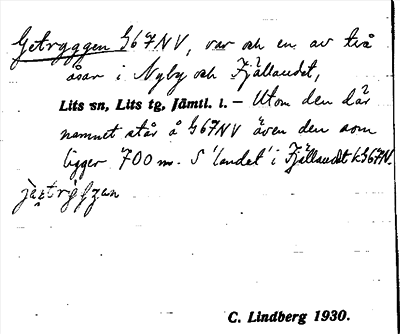 Getryggen G67NV, var och en av två
åsar i Nyby och Fjällandet,
Lits sn, Lits tg, Jämtl. l. – Utom den där
namnet står å G67NV även den som
ligger 700 m. S 'landet' i Fjällandet k. G67N.
C. Lindberg 1930.